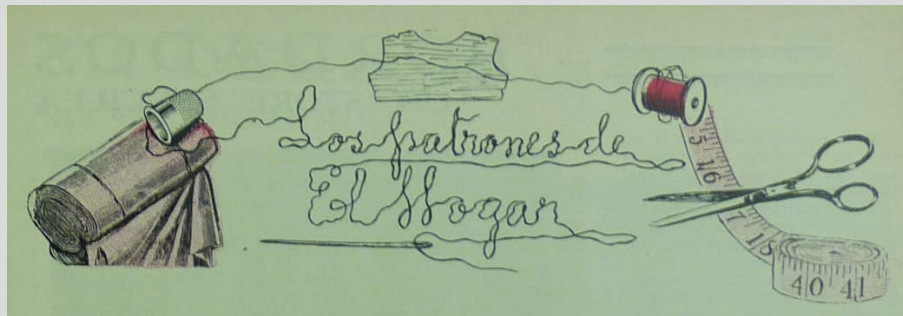 Los patrones de
El Hogar
15
16
17
18
40 41